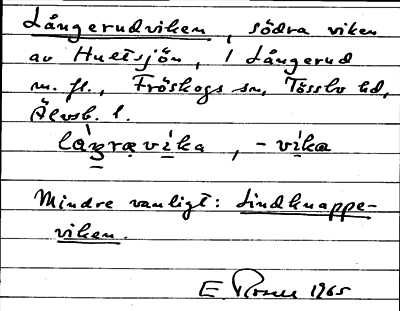 Långerudviken, södra viken
av Hultsjön, i Långerud
m. fl., Fröskogs sn, Tössbo hd,
Älvsb. l.
låŋravika, -vika
Mindre vanligt: Lindknappe-
viken.
E. 1965